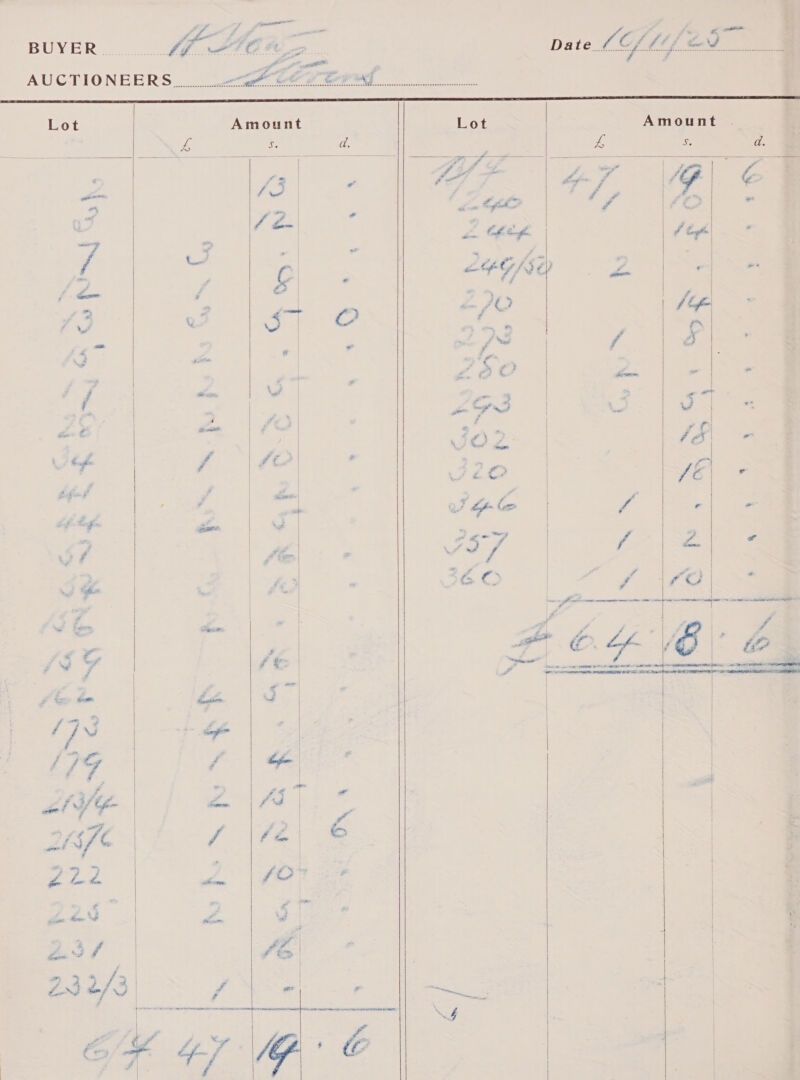 BUYER H Stow
Date 10/11/25
AUCTIONEERS Stevens
Lot Amount
£ s. d.
2 13 -
3 12 -
7 3 - -
12 1 8 -
13 3 5 0
15 2 - -
17 2 5 -
28 2 10 -
34 1 10 -
41 1 2 -
44 2 5 -
57 16 -
3 10 -
156 2 - -
159 16 -
162 4 5 -
173 4 - -
179 1 4 -
213/4 2 15 -
215/6 1 12 6
222 2 10 -
225 2 5 -
231 16 -
232/3 1 - -
C/F 47 19 . 6
Lot Amount
£ s. d.
B/F 47, 19 6
240 1 10 -
244 14 -
249/50 2 - -
270 14 -
273 1 8 -
280 2 - -
293 3 5 -
302 18 -
320 18 -
346 1 - -
357 1 2 -
360 1 10 -
£ 64 18 . 6